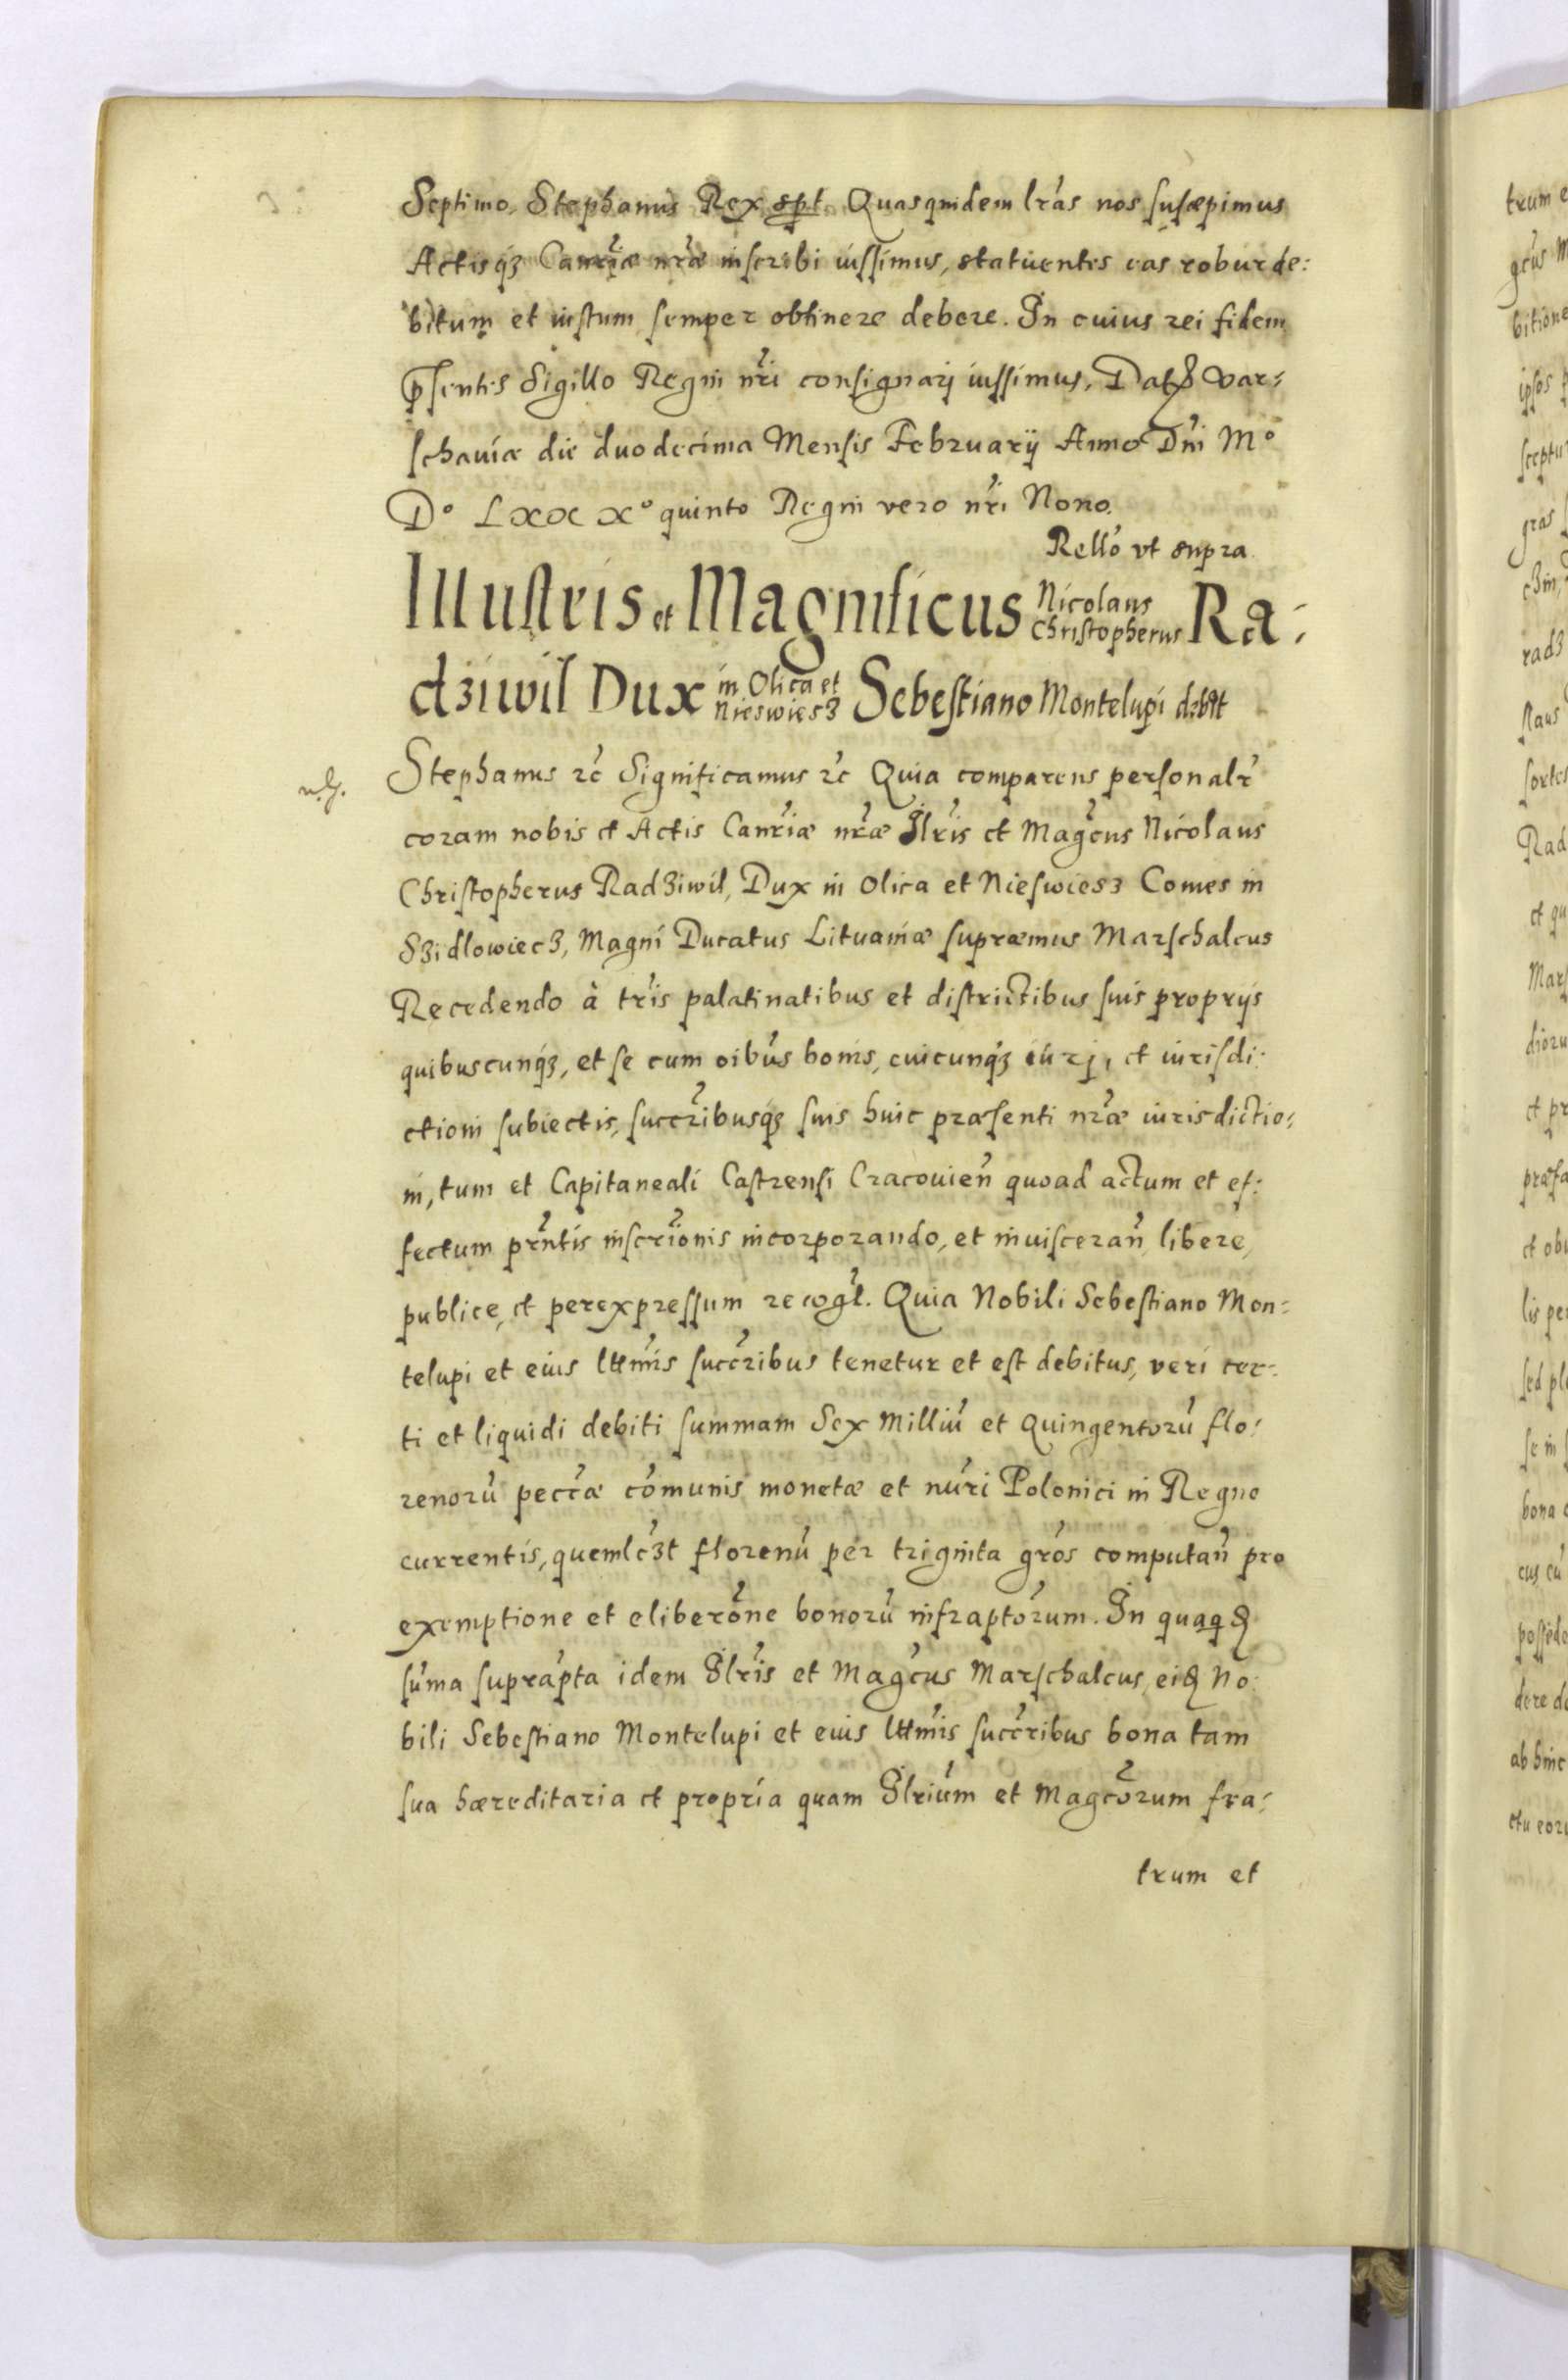 Septimo, Stephanus Rex spt. Quasquidem lrás nos suscæpimus
Actisq́ꝫ Canr̃iæ nr̃æ inscribi iussimus, statuentes eas robur de:
bitum et iustum semper obtinere debere. In cuius rei fidem
p̃sentes Sigillo Regni nr̃i consignarj iussimus, Dat. Var:
schauiæ die duodecima Mensis Februarij Anno Dn̓i Mº
Dº LXXXº quinto Regni vero nr̃i Nono.
Rello̓ vt supra
Illustris et Magnificus Nicolaus Christopherus Ra:
dziwil Dux in Olica et Nieswiesz Sebestiano Montelupi debet
Stephanus ꝛc̓ Significamus ꝛc̓ Quia comparens personalr̓
coram nobis et Actis Canr̃iæ nr̃æ Ilr̃is et Magc̓us Nicolaus
Christopherus Radziwil, Dux in Olica et Nieswiesz Comes in
Szidlowiecz, Magni Ducatus Lituaniæ supræmus Marschalcus
Recedendo à tr̓is palatinatibus et districtibus suis proprijs
quibuscunq́ꝫ, et se cum oibus̓ bonis, cuicunq́ꝫ iúrj, et iurisdi:
ctioni subiectis, succr̃ibusq́ꝫ suis huic præsenti nr̃æ iurisdictio:
ni, tum et Capitaneali Castrensi Cracouien̓ quoad actum et ef:
fectum pr̃ntis inscr̃ionis incorporando, et inuisceran̓ libere,
publice, et perexpressum recogt̓. Quia Nobili Sebestiano Mon:
telupi et eius lttm̓is succr̃ibus tenetur et est debitus, veri cer:
ti et liquidi debiti summam Sex Milliú et Quingentorú flo:
renorú pecc̓æ com̓unis monetæ et nur̓i Polonici in Regno
currentis, quemlc̓ꝫt florenú per triginta gros̓ computan̓ pro
exemptione et eliberõne bonorú infrapto̓rum. In quaq
sum̓a supráp̓ta idem Ilr̃is et Magc̓us Marschalcus, eid No:
bili Sebestiano Montelupi et eius lttm̓is succr̃ibus bona tam
sua hæreditaria et propria quam Ilrium̓ et Magco̓rum fra:
trum et